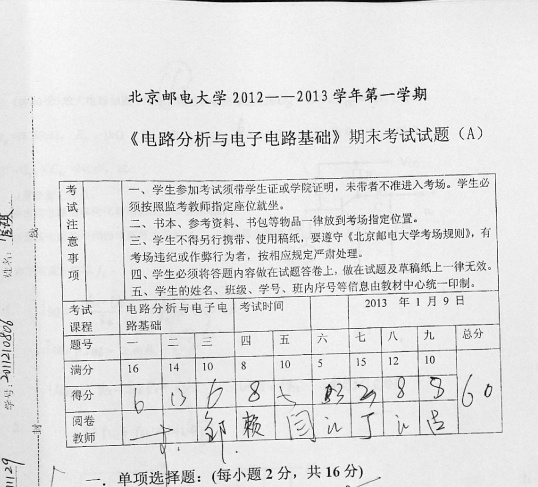 北京邮电大学 2012——2013 学年第一学期
《电路分析与电子电路基础》期末考试试题（A）
考试注意事项
一、学生参加考试须带学生证或学院证明，未带者不准进入考场。学生必
须按照监考教师指定座位就坐。
二、书本、参考资料、书包等物品一律放到考场指定位置。
三、学生不得另行携带、使用稿纸，要遵守《北京邮电大学考场规则》，有
考场违纪或作弊行为者，按相应规定严肃处理。
四、学生必须将答题内容做在试题答卷上，做在试题及草稿纸上一律无效。
五、学生的姓名、班级、学号、班内序号等信息由教材中心统一印制。
考试课程 电路分析与电子电路基础 考试时间 2013 年 1 月 9 日
题号 一 二 三 四 五 六 七 八 九 总分
满分 16 14 10 8 10 5 15 12 10
得分 6 13 6 8 8 8 60
阅卷教师
一．单项选择题：(每小题 2 分，共 16 分)
姓名:
学号: 2011210806
11129
线
封